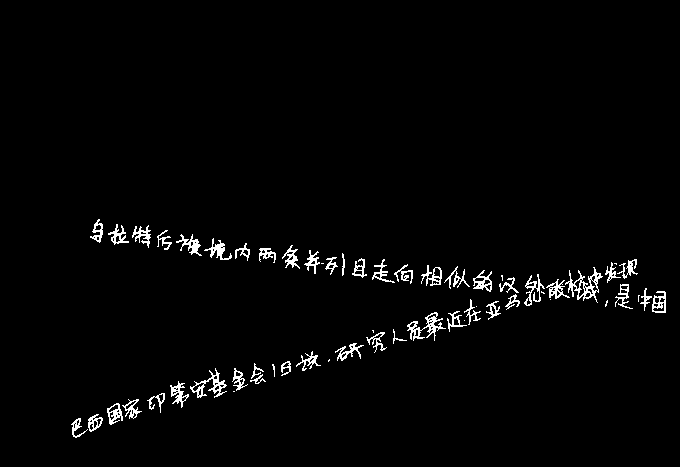 乌拉特后旗境内两条并列且走向相似的汉外城,是中国
巴西国家印第安基金会1日说,研究人员最近在亚马孙林中发现